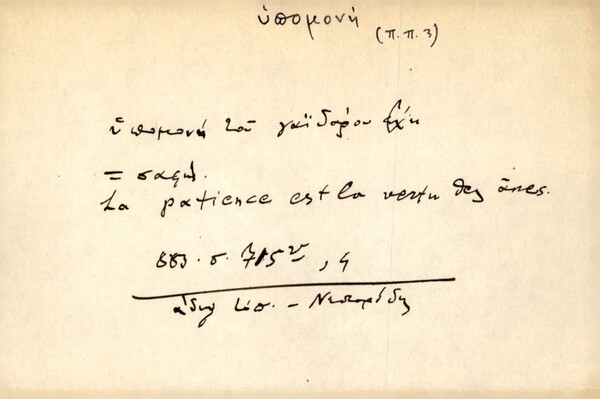 ὑπομονή
(π.π. 3)
ὑπομονή τοῦ γαϊδάρου ἔχει
= σαφής.
La patience est la vertu des ânes.
883. σ. 715 , 4
τόπ. –